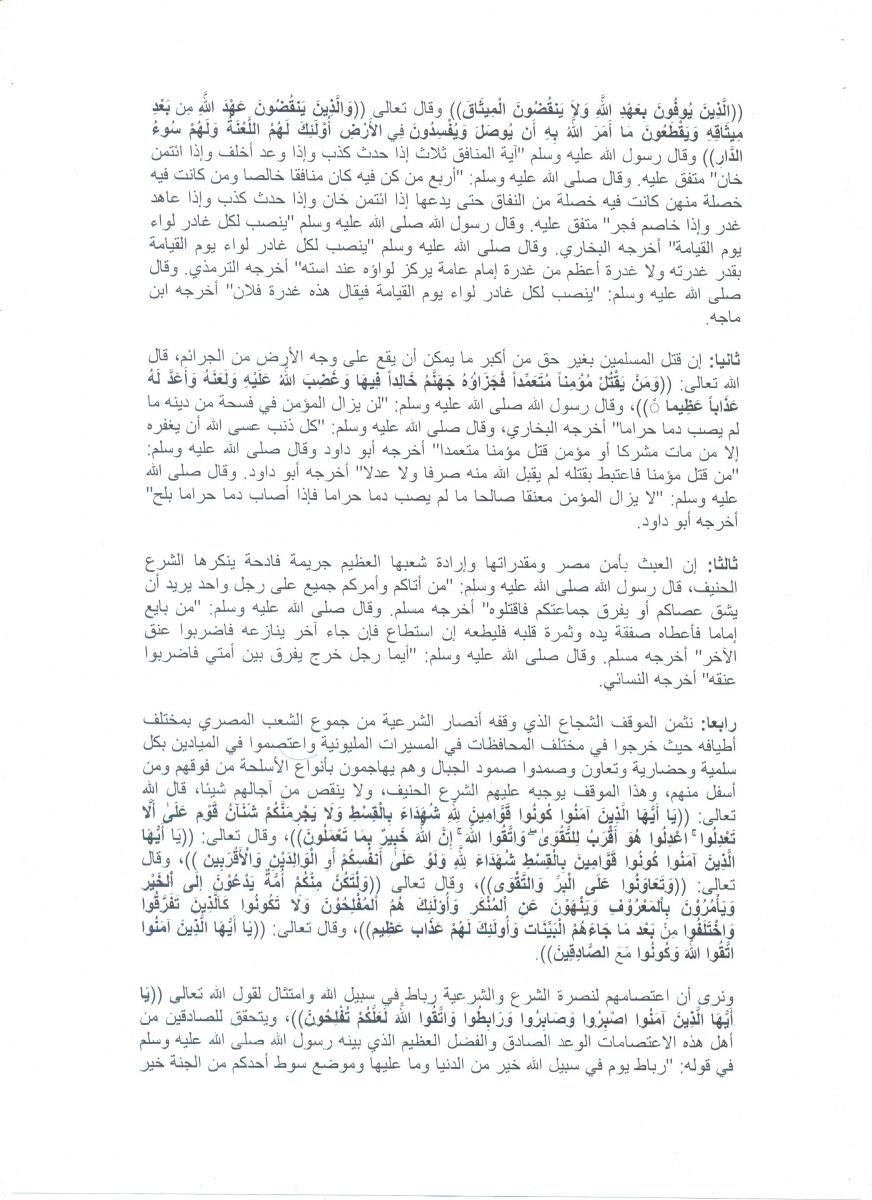 ((الَّذِينَ يُوفُونَ بِعَهْدِ اللَّهِ وَلاَ يَنقُضُونَ الْمِيثَاقَ)) وقال تعالى ((وَالَّذِينَ يَنقُضُونَ عَهْدَ اللَّهِ مِن بَعْدِ
مِيثَاقِهِ وَيَقْطَعُونَ مَا أَمَرَ اللَّهُ بِهِ أَن يُوصَلَ وَيُفْسِدُونَ فِي الأَرْضِ أُوْلَئِكَ لَهُمُ اللَّعْنَةُ وَلَهُمْ سُوءُ
الدَّارِ)) وقال رسول الله عليه وسلم "آية المنافق ثلاث إذا حدث كذب وإذا وعد أخلف وإذا ائتمن
خان" متفق عليه. وقال صلى الله عليه وسلم: "أربع من كن فيه كان منافقا خالصا ومن كانت فيه
خصلة منهن كانت فيه خصلة من النفاق حتى يدعها إذا ائتمن خان وإذا حدث كذب وإذا عاهد
غدر وإذا خاصم فجر" متفق عليه. وقال رسول الله صلى الله عليه وسلم "ينصب لكل غادر لواء
يوم القيامة" أخرجه البخاري. وقال صلى الله عليه وسلم "ينصب لكل غادر لواء يوم القيامة
بقدر غدرته ولا غدرة أعظم من غدرة إمام عامة يركز لواؤه عند استه" أخرجه الترمذي. وقال
صلى الله عليه وسلم: "ينصب لكل غادر لواء يوم القيامة فيقال هذه غدرة فلان" أخرجه ابن
ماجه.
ثانيا: إن قتل المسلمين بغير حق من أكبر ما يمكن أن يقع على وجه الأرض من الجرائم، قال
الله تعالى: ((وَمَنْ يَقْتُلْ مُؤْمِناً مُتَعَمِّداً فَجَزَاؤُهُ جَهَنَّمُ خَالِداً فِيهَا وَغَضِبَ اللَّهُ عَلَيْهِ وَلَعَنَهُ وَأَعَدَّ لَهُ
عَذَاباً عَظِيما ً))، وقال رسول الله صلى الله عليه وسلم: "لن يزال المؤمن في فسحة من دينه ما
لم يصب دما حراما" أخرجه البخاري، وقال صلى الله عليه وسلم: "كل ذنب عسى الله أن يغفره
إلا من مات مشركا أو مؤمن قتل مؤمنا متعمدا" أخرجه أبو داود وقال صلى الله عليه وسلم:
"من قتل مؤمنا فاعتبط بقتله لم يقبل الله منه صرفا ولا عدلا" أخرجه أبو داود. وقال صلى الله
عليه وسلم: "لا يزال المؤمن معنقا صالحا ما لم يصب دما حراما فإذا أصاب دما حراما بلح"
أخرجه أبو داود.
ثالثا: إن العبث بأمن مصر ومقدراتها وإرادة شعبها العظيم جريمة فادحة ينكرها الشرع
الحنيف، قال رسول الله صلى الله عليه وسلم: "من أتاكم وأمركم جميع على رجل واحد يريد أن
يشق عصاكم أو يفرق جماعتكم فاقتلوه" أخرجه مسلم. وقال صلى الله عليه وسلم: "من بايع
إماما فأعطاه صفقة يده وثمرة قلبه فليطعه إن استطاع فإن جاء آخر ينازعه فاضربوا عنق
الآخر" أخرجه مسلم. وقال صلى الله عليه وسلم: "أيما رجل خرج يفرق بين أمتي فاضربوا
عنقه" أخرجه النسائي.
رابعا: نثمن الموقف الشجاع الذي وقفه أنصار الشرعية من جموع الشعب المصري بمختلف
أطيافه حيث خرجوا في مختلف المحافظات في المسيرات المليونية واعتصموا في الميادين بكل
سلمية وحضارية وتعاون وصمدوا صمود الجبال وهم يهاجمون بأنواع الأسلحة من فوقهم ومن
أسفل منهم، وهذا الموقف يوجبه عليهم الشرع الحنيف، ولا ينقص من آجالهم شيئا، قال الله
تعالى: ((يَا أَيُّهَا الَّذِينَ آمَنُوا كُونُوا قَوَّامِينَ لِلَّهِ شُهَدَاءَ بِالْقِسْطِ وَلَا يَجْرِمَنَّكُمْ شَنَآنُ قَوْمٍ عَلَىٰ أَلَّا
تَعْدِلُوا ۚ اعْدِلُوا هُوَ أَقْرَبُ لِلتَّقْوَىٰ ۖ وَاتَّقُوا اللَّهَ ۚ إِنَّ اللَّهَ خَبِيرٌ بِمَا تَعْمَلُونَ))، وقال تعالى: ((يَا أَيُّهَا
الَّذِينَ آمَنُوا كُونُوا قَوَّامِينَ بِالْقِسْطِ شُهَدَاءَ لِلَّهِ وَلَوْ عَلَىٰ أَنفُسِكُمْ أَوِ الْوَالِدَيْنِ وَالْأَقْرَبِينَ ))، وقال
تعالى: ((وَتَعَاوَنُوا عَلَى الْبَرِّ وَالتَّقْوَى))، وقال تعالى ((وَلْتَكُنْ مِنْكُمْ أُمَّةٌ يَدْعُونَ إِلَى الْخَيْرِ
وَيَأْمُرُونَ بِالْمَعْرُوفِ وَيَنْهَوْنَ عَنِ الْمُنْكَرِ وَأُولَئِكَ هُمُ الْمُفْلِحُونَ وَلَا تَكُونُوا كَالَّذِينَ تَفَرَّقُوا
وَاخْتَلَفُوا مِنْ بَعْدِ مَا جَاءَهُمُ الْبَيِّنَاتُ وَأُولَئِكَ لَهُمْ عَذَابٌ عَظِيمٌ))، وقال تعالى: ((يَا أَيُّهَا الَّذِينَ آمَنُوا
اتَّقُوا اللَّهَ وَكُونُوا مَعَ الصَّادِقِينَ)).
ونرى أن اعتصامهم لنصرة الشرع والشرعية رباط في سبيل الله وامتثال لقول الله تعالى ((يَا
أَيُّهَا الَّذِينَ آمَنُوا اصْبِرُوا وَصَابِرُوا وَرَابِطُوا وَاتَّقُوا اللَّهَ لَعَلَّكُمْ تُفْلِحُونَ))، ويتحقق للصادقين من
أهل هذه الاعتصامات الوعد الصادق والفضل العظيم الذي بينه رسول الله صلى الله عليه وسلم
في قوله: "رباط يوم في سبيل الله خير من الدنيا وما عليها وموضع سوط أحدكم من الجنة خير